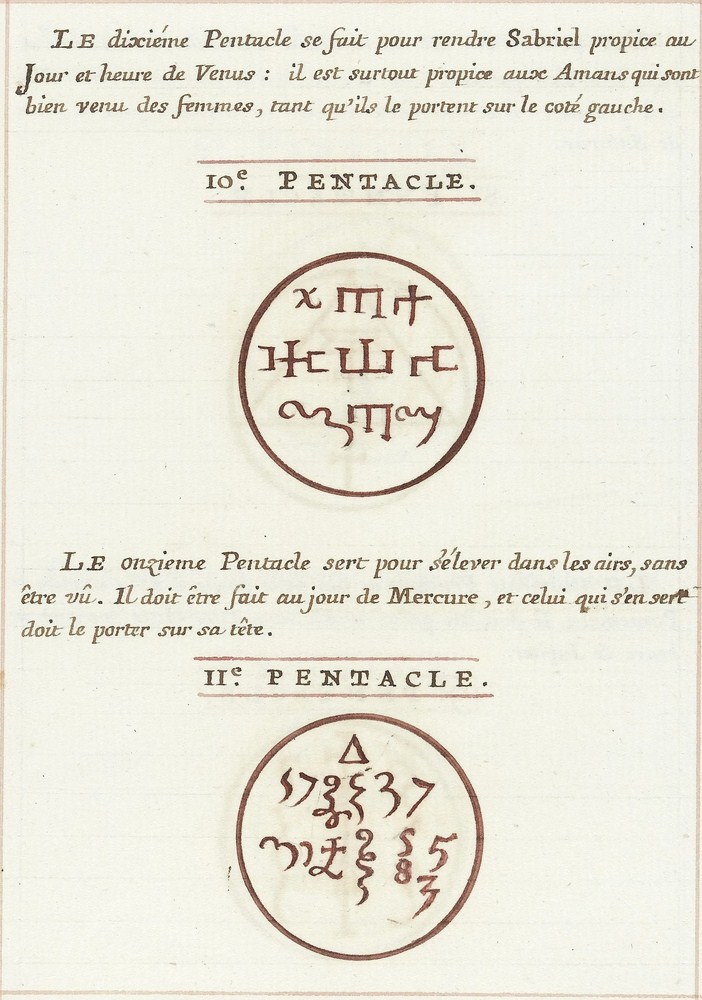 LE dixiéme Pentacle se fait pour rendre Sabriel propice au
Jour et heure de Venus : il est surtout propice aux Amans qui sont
bien venu des femmes, tant qu'ils le portent sur le coté gauche.
10e. PENTACLE.
LE onzieme Pentacle sert pour s'élever dans les airs, sans
être vû. Il doit être fait au jour de Mercure, et celui qui s'en sert
doit le porter sur sa tête.
11e. PENTACLE.